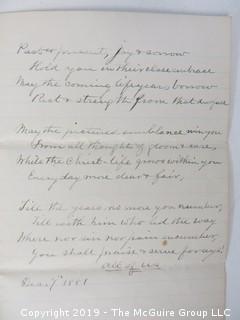 Past or present, joy & sorrow
Hold you in their close embrace
May the coming life years borrow
Rest & strength from that
May the pictured semblance win you
From all thought of gloom & care,
While the Christ-life grows within you
Every day more dear & fair,
Till the years no more you number,
Till with him who led the way
Where nor sin nor pain encumber,
You shall praise & serve for aye!
All of us
1881
Copyright 2019 - The McGuire Group LLC